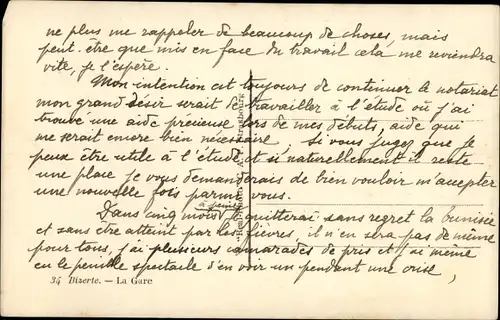 ne plus me rappeler de beaucoup de choses, mais
peut-etre que mis en face du travail cela me reviendra
vite, je l'espère.
Mon intention est toujours de continuer le notariat
mon grand désir serait de travailler à l'étude où j'ai
trouvé une aide précieuse lors de mes débuts, aide qui
me serait encore bien nécessaire, si vous jugez que je
peux être utile à l'étude et si naturellement il reste
une place je vous demanderais de bien vouloir m'accepter
une nouvelle fois parmi vous.
à peine
Dans cinq mois je quitterai sans regret la Tunisie
et sans être atteint par les fièvres, il n'en sera pas de même
pour tous, j'ai plusieurs camarades de pris et j'ai même
eu le pénible spectacle d'en voir un pendant une crise,
34 Bizerte. — La Gare